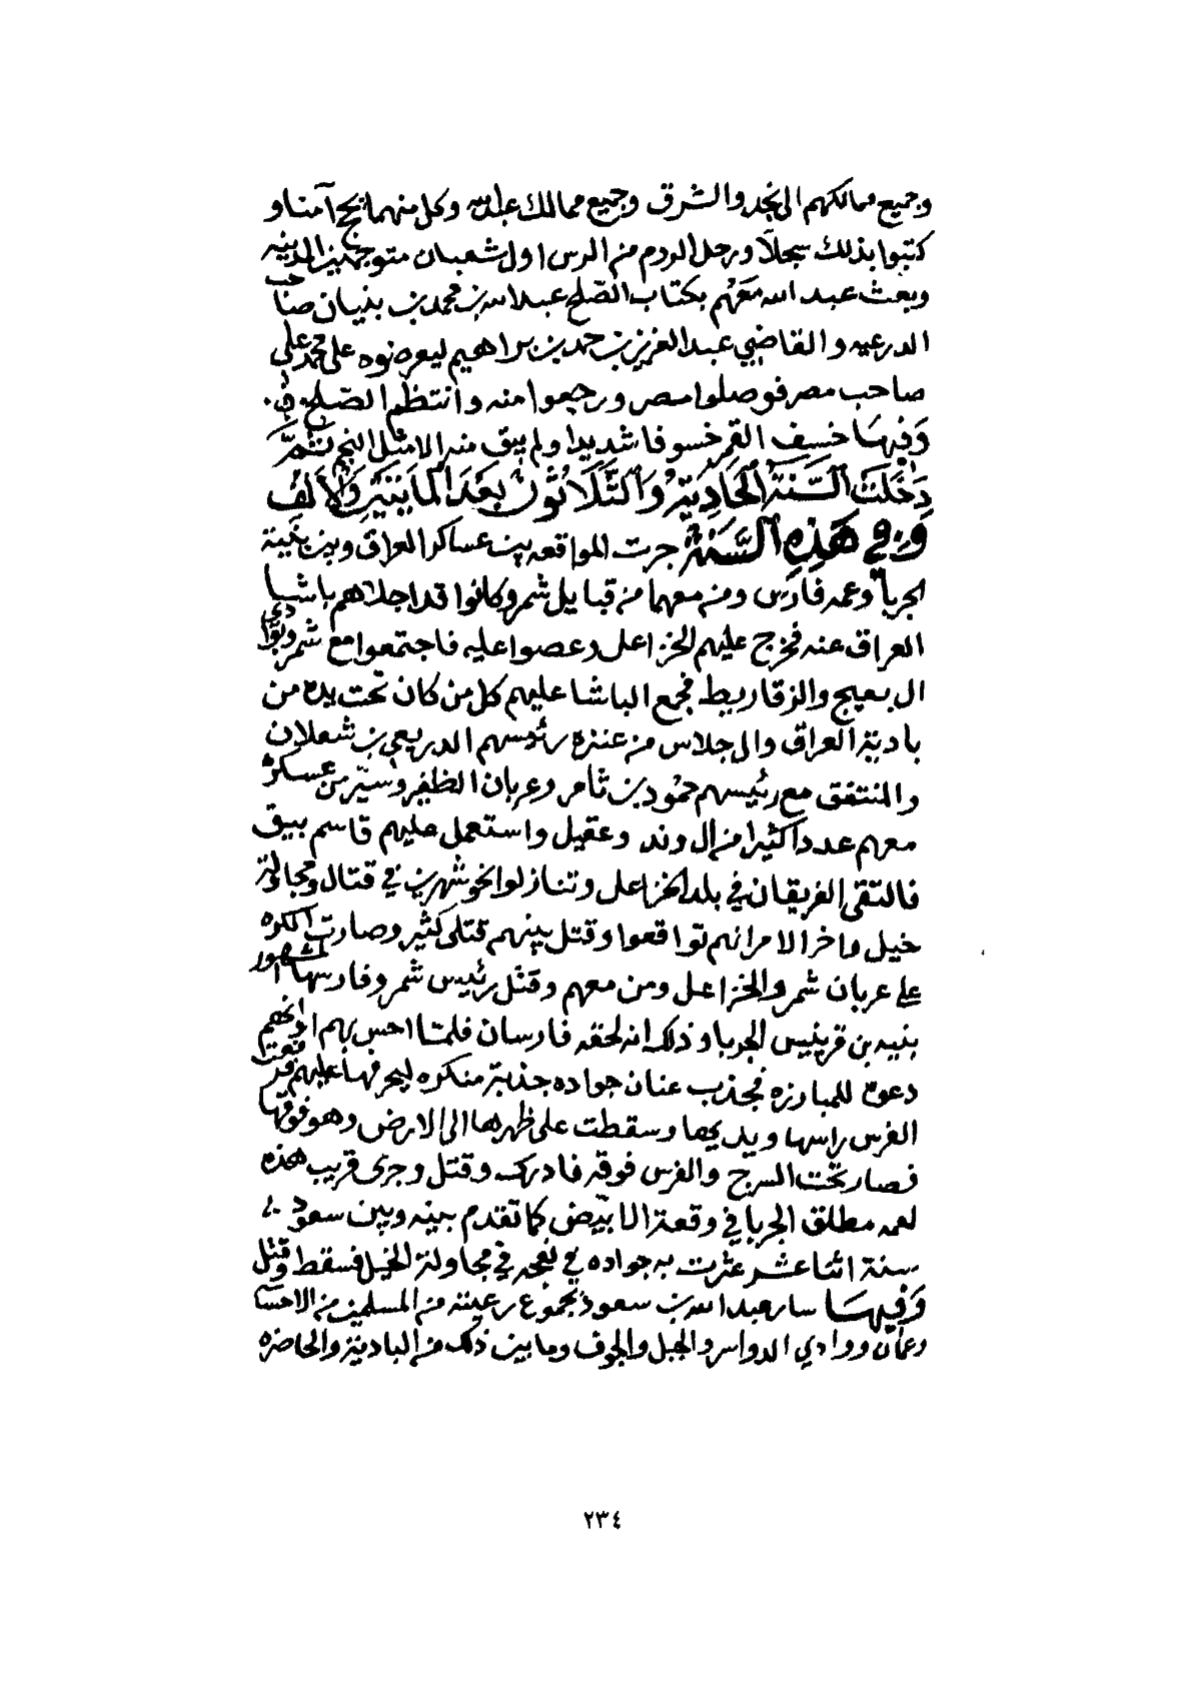 وجميع ممالكهم الى نجد والشرق وجميع ممالك عبدالله وكل منهما يحج آمنا و
كتبوا بذلك سجلاً ورحل الروم من الرس اول شعبان متوجهين المدينه
وبعث عبد الله معهم بكتاب الصّلح عبدالله بن محمد بن بنيان صاحب
الدرعيه والقاضي عبدالعزيز بن حمد بن براهيم ليعرضوه على محمد علي
صاحب مصر فوصلوا مصر ورجعوا منه وانتظم الصّلح
وَفِيهَا خسف القمر خسوفا شديدا ولم يبق منه الا مثل النجم ثُمَّ
دَخَلَتْ السَّنَةُ الحَادِيَةُ وَالثَّلَاثُونْ بَعْدَ المَايَتَيْنِ وَالأَلفْ
وَفِي هَذِهِ السَّنَةُ جرت المواقعه بين عساكر العراق وبين بنية
الجربا وعمه فارس ومن معهما من قبايل شمر وكانوا قد اجلاهم باشا
العراق عنه فخرج عليهم الخزاعل وعصوا عليه فاجتمعوا مع شمر وبوادي
ال بعيج والزقاريط فجمع الباشا عليهم كل من كان تحت يده من
بادية العراق وال جلاس من عنزه رئيسهم الدريعي بن شعلان
والمنتفق مع رئيسهم حمُود بن ثامر وعربان الظفير وسيّر من عسكره
معهم عددا كثيرا من ال وند وعقيل واستعمل عليهم قاسم بيق
فالتقى الفريقان في بلد الخزاعل وتنازلوا نحو شهرين في قتال ومجاولة
خيل واخر الامر انهم تواقعوا وقتل بينهم قتلى كثير وصارت الكره
على عربان شمر والخزاعل ومن معهم وقتل رئيس شمر وفارسها المشهور
بنيه بن قرينيس الجربا وذلك انه لحقه فارسان فلمّا احس بهم او انهم
دعوه للمبارزه فجذب عنان جواده جذبة منكره ليحرفها عليهم فرفعت
الفرس راسها ويديها وسقطت على ظهرها الى الارض وهو فوقها
فصار تحت السرج والفرس فوقه فادرك وقتل وجرى قريب هذه
لعمه مطلق الجربا في وقعة الابيّض كما تقدم بينه وبين سعود
سنة اثنا عشر عثرت به جواده في نعجه في مجاولة الخيل فسقط وقتل
وَفِيهَا سار عبدالله بن سعود بجموع رعيته من المسلمين من الاحسا
وعمان ووادي الدواسر والجبل والجوف وما بين ذلك من البادية والحاضره
٢٣٤